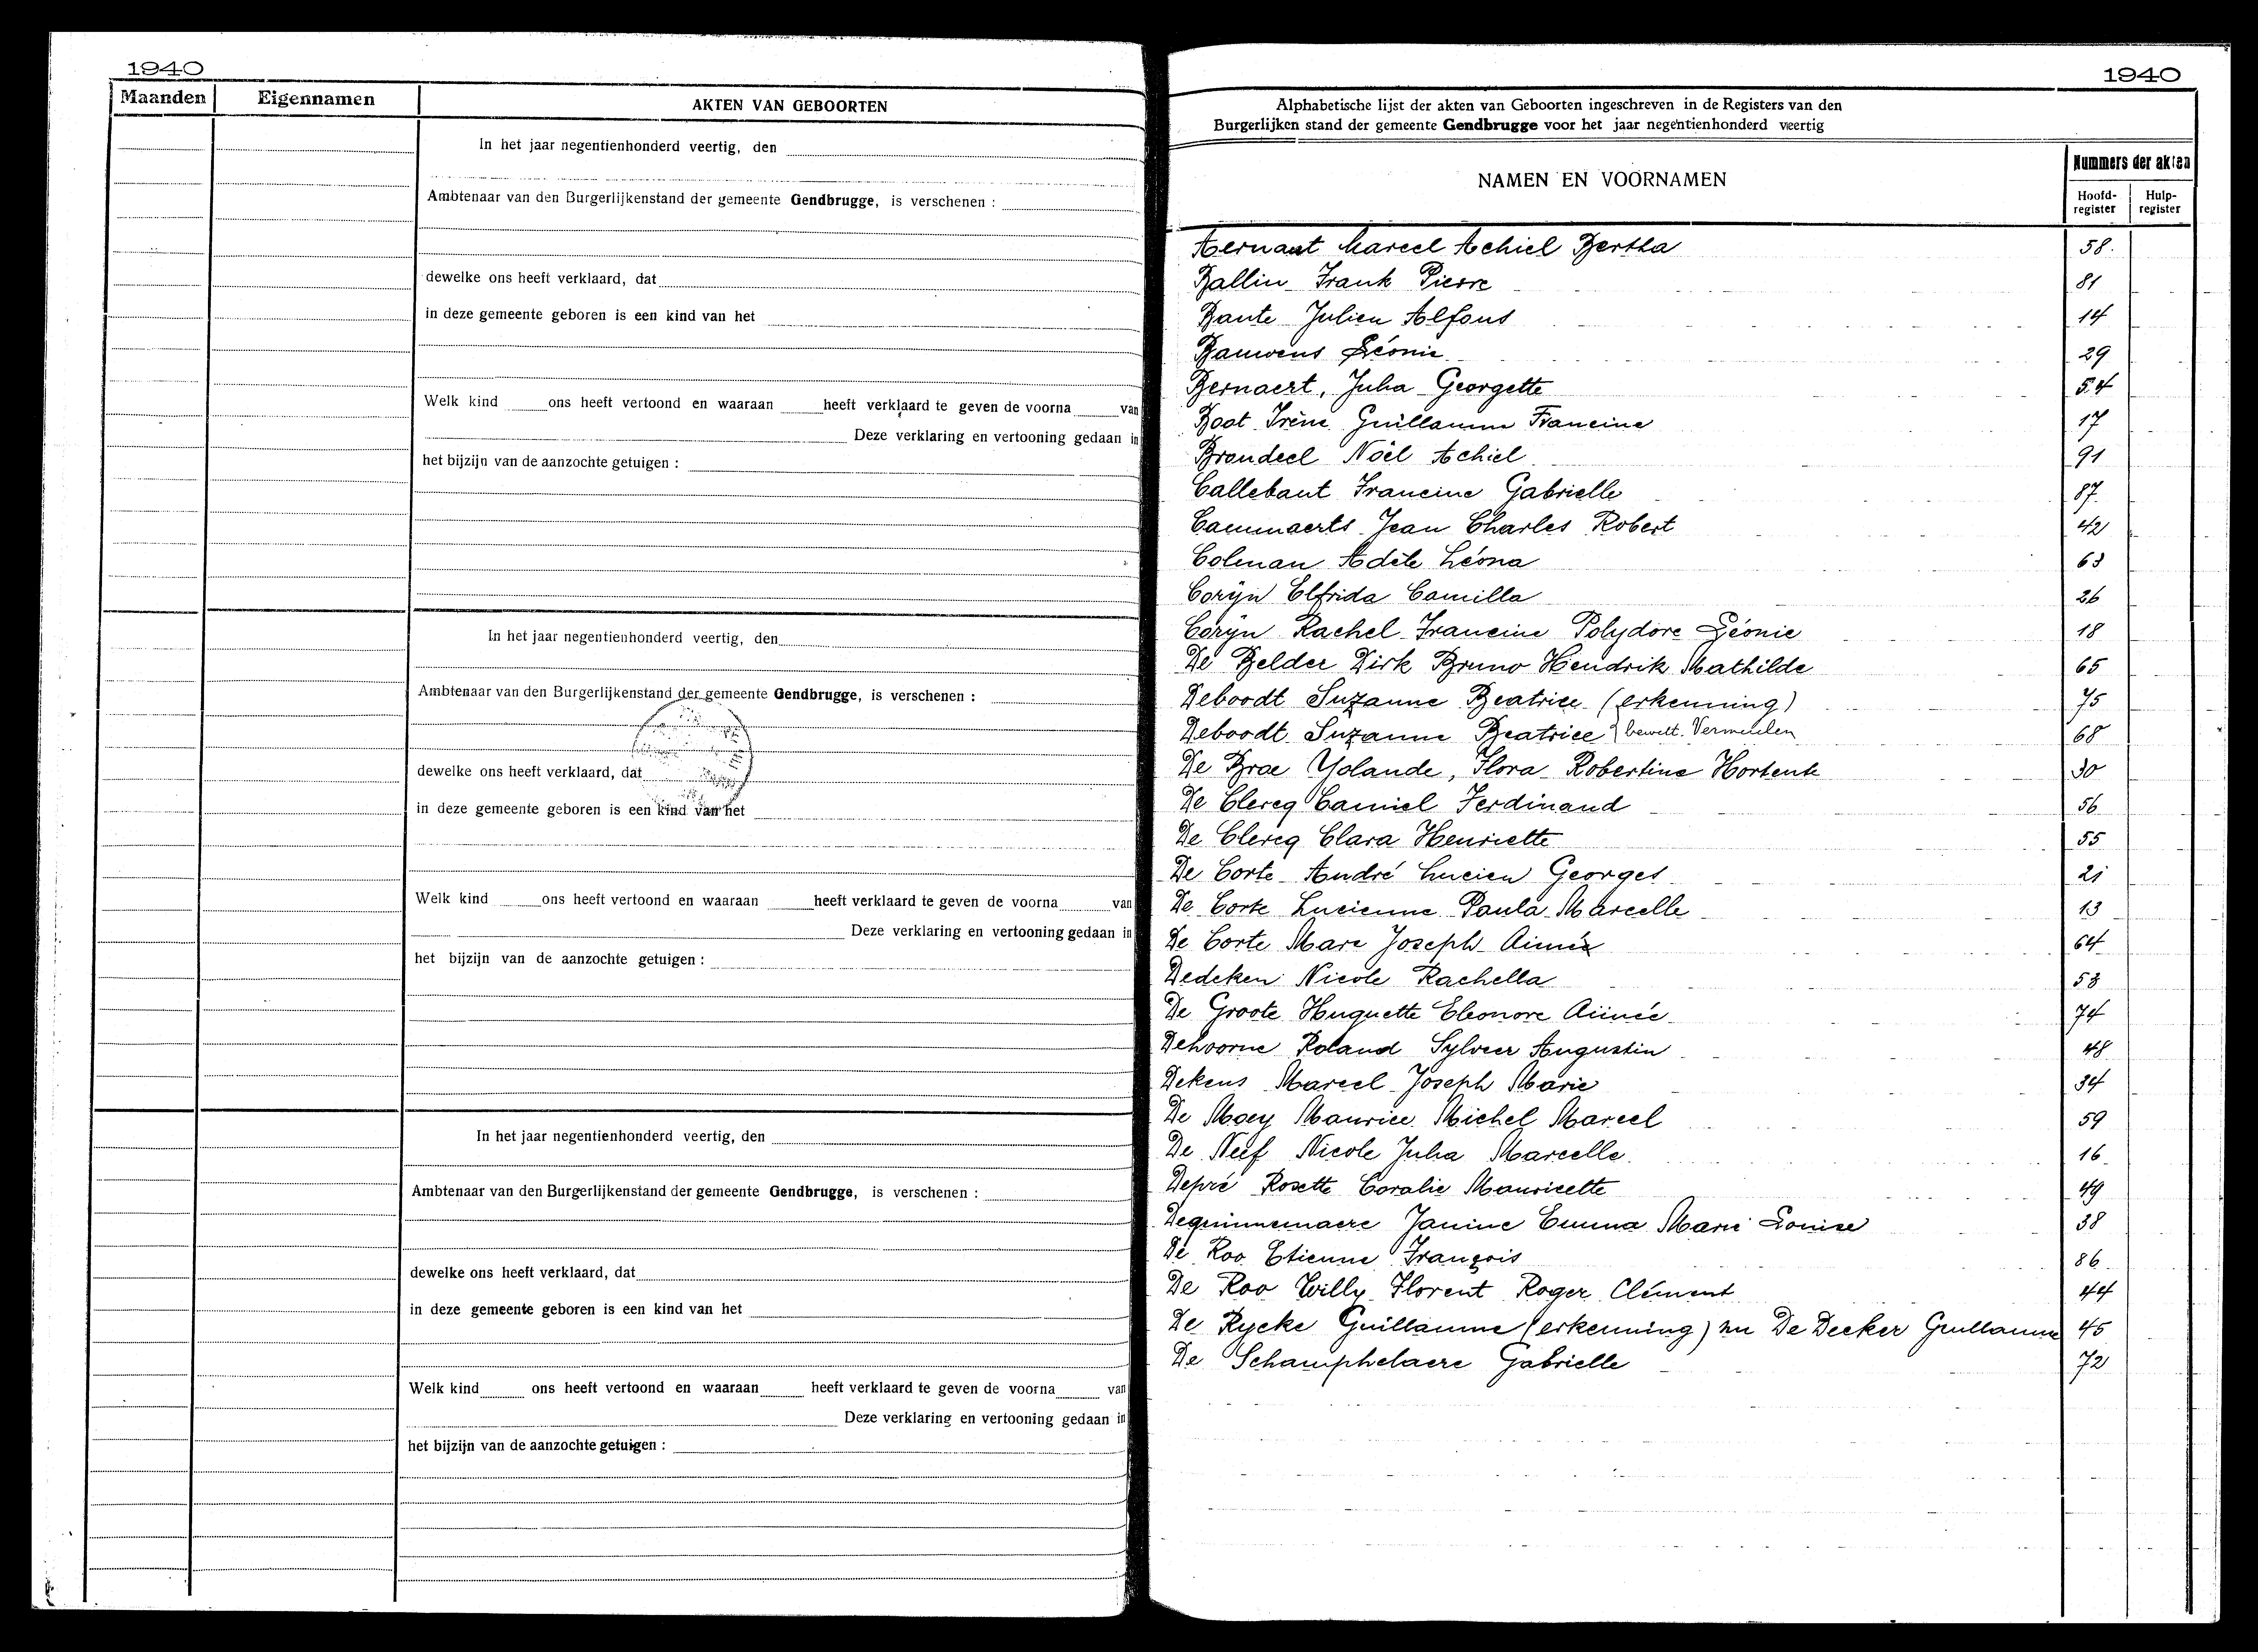 1940
Maanden
Eigennamen
AKTEN VAN GEBOORTEN
In het jaar negentienhonderd veertig, den
Ambtenaar van den Burgerlijkenstand der gemeente Gendbrugge, is verschenen :
dewelke ons heeft verklaard, dat
in deze gemeente geboren is een kind van het
Welk kind ons heeft vertoond en waaraan heeft verklaard te geven de voorna van
Deze verklaring en vertooning gedaan in
het bijzijn van de aanzochte getuigen :
In het jaar negentienhonderd veertig, den
Ambtenaar van den Burgerlijkenstand der gemeente Gendbrugge, is verschenen :
dewelke ons heeft verklaard, dat
in deze gemeente geboren is een kind van het
Welk kind ons heeft vertoond en waaraan heeft verklaard te geven de voorna van
Deze verklaring en vertooning gedaan in
het bijzijn van de aanzochte getuigen :
In het jaar negentienhonderd veertig, den
Ambtenaar van den Burgerlijkenstand der gemeente Gendbrugge, is verschenen :
dewelke ons heeft verklaard, dat
in deze gemeente geboren is een kind van het
Welk kind ons heeft vertoond en waaraan heeft verklaard te geven de voorna van
Deze verklaring en vertooning gedaan in
het bijzijn van de aanzochte getuigen :
1940
Alphabetische lijst der akten van Geboorten ingeschreven in de Registers van den
Burgerlijken stand der gemeente Gendbrugge voor het jaar negentienhonderd veertig
NAMEN EN VOORNAMEN
Nummers der akten
Hoofd-register
Hulp-register
Aernaut Marcel Achiel Bertha 58.
Ballin Frank Pierre 81
Bante Julien Alfons 14
Bauwens Léonie 29
Bernaert, Julia Georgette 54
Boat Irène Guillaume Francine 17
Brondeel Noël Achiel 91
Callebaut Francine Gabrielle 87
Cammaerts Jean Charles Robert 42
Colman Adèle Léona 63
Coryn Elfrida Camilla 26
Coryn Rachel Francine Polydore Léonie 18
De Belder Dirk Bruno Hendrik Mathilde 65
Deboodt Suzanne Beatrice (erkenning) 75
Deboodt Suzanne Beatrice bewett. Vermeulen 68
De Brae Yolande, Flora Robertine Hortense 30
De Clercq Camiel Ferdinand 56
De Clercq Clara Henriette 55
De Corte André Lucien Georges 21
De Corte Lucienne Paula Marcelle 13
De Corte Marc Joseph Aimée 64
Dedeken Nicole Rachella 53
De Groote Huguette Eleonore Aimée 74
Dehoorne Roland Sylveer Augustin 48
Dekens Marcel Joseph Marie 34
De Moey Maurice Michel Marcel 59
De Neef Nicole Julia Marcelle 16
Depré Rosette Coralie Mauricette 49
Dequinnemaere Janine Emma Marie Louise 38
De Roo Etienne François 86
De Roo Willy Florent Roger Clément 44
De Rycke Guillaume (erkenning) nu De Decker Guillaume 45
De Schamphelaere Gabrielle 72